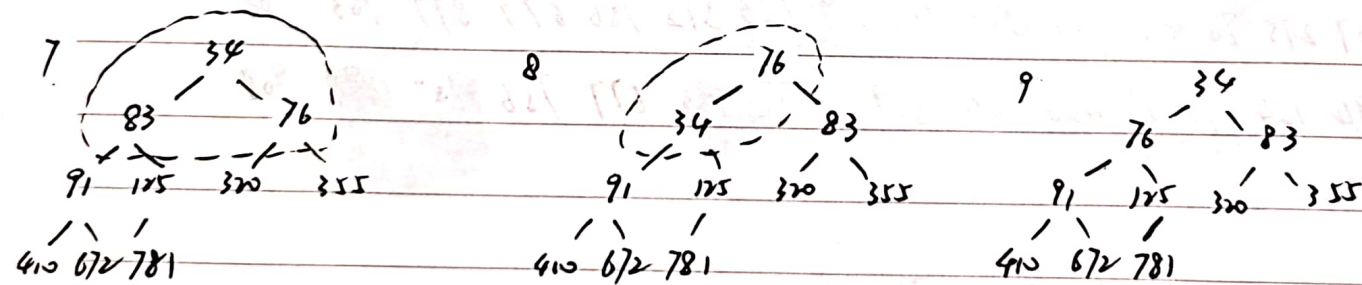 7 34
83 76
91 125 320 355
410 672 781
8 76
34 83
91 125 320 355
410 672 781
9 34
76 83
91 125 320 355
410 672 781